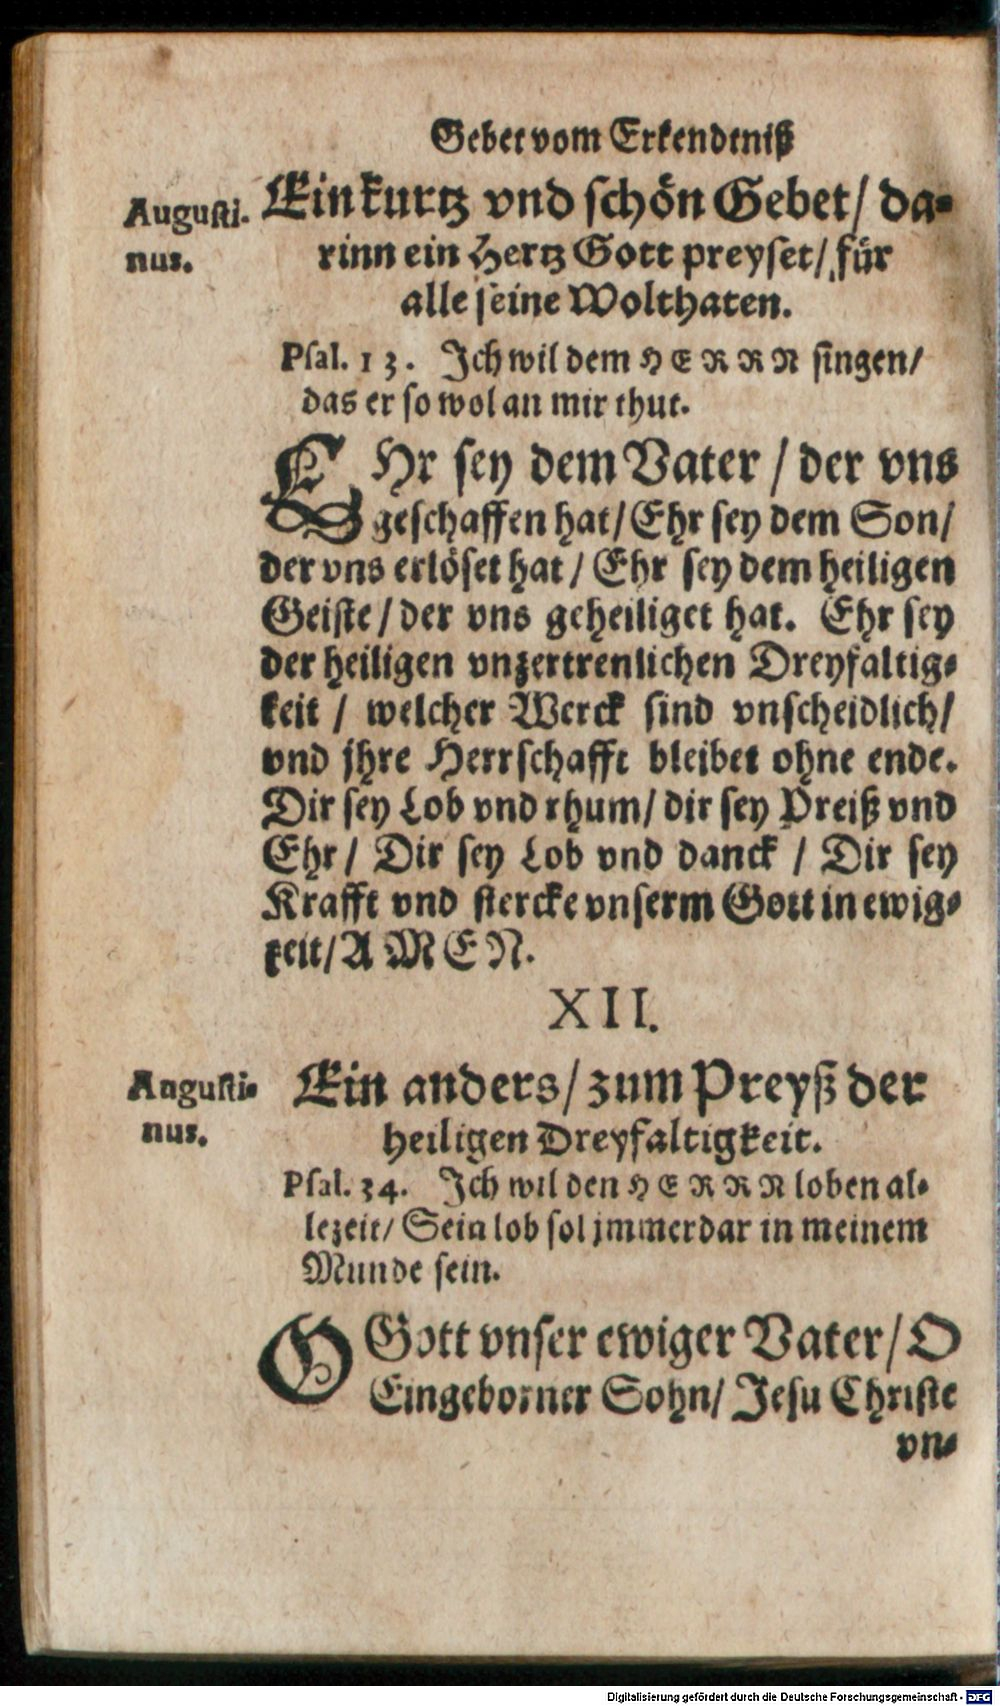 Gebet vom Erkendtniß
Augusti-
nus.
Ein kurtz vnd schön Gebet/ da-
rinn ein Hertz Gott preyset/ für
alle seine Wolthaten.
Psal. 13. Ich wil dem HERRN singen/
das er so wol an mir thut.
EHr sey dem Vater / der vns
geschaffen hat/ Ehr sey dem Son/
der vns erlöset hat / Ehr sey dem heiligen
Geiste / der vns geheiliget hat. Ehr sey
der heiligen vnzertrenlichen Dreyfaltig-
keit / welcher Werck sind vnscheidlich/
vnd jhre Herrschafft bleibet ohne ende.
Dir sey Lob vnd rhum/ dir sey Preiß vnd
Ehr / Dir sey Lob vnd danck / Dir sey
Krafft vnd stercke vnserm Gott in ewig-
keit/ AMEN.
XII.
Augusti-
nus.
Ein anders/ zum Preyß der
heiligen Dreyfaltigkeit.
Psal. 34. Ich wil den HERRN loben al-
lezeit/ Sein lob sol jmmerdar in meinem
Munde sein.
O Gott vnser ewiger Vater/ O
Eingeborner Sohn/ Jesu Christe
vn-
Digitalisierung gefördert durch die Deutsche Forschungsgemeinschaft - DFG